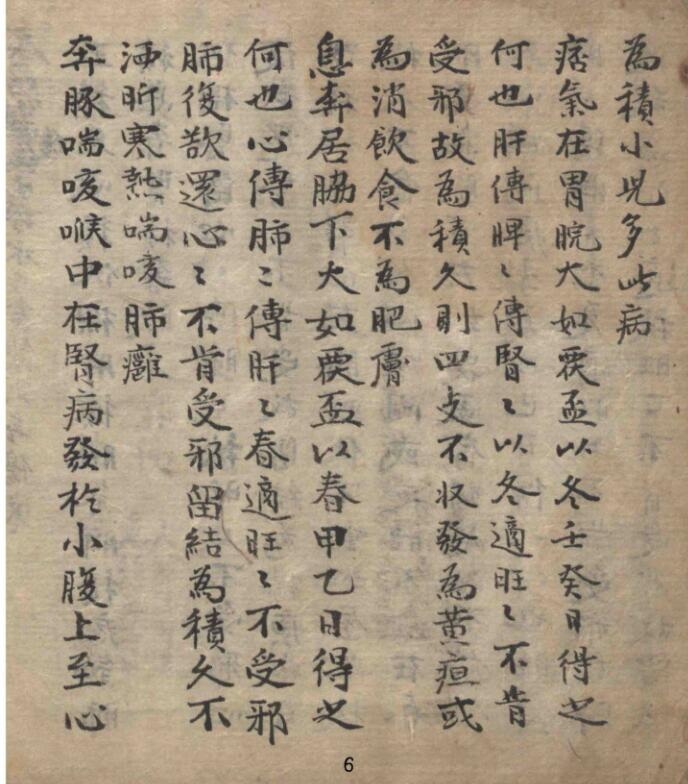 為積小児多此病
痞氣在胃脘大如覆盃以冬壬癸日得之
何也肝傳脾〻傳腎〻以冬適旺〻不肯
受邪故為積久則四支不收發為黄疸或
為消飲食不為肥膚
息奔居脇下大如覆盃以春甲乙日得之
何也心傳肺〻傳肝〻春適旺〻不受邪
肺復欲還心〻不肯受邪留結為積久不
洒昕寒熱喘咳肺癰
奔豚喘咳喉中在腎病發於小腹上至心
6